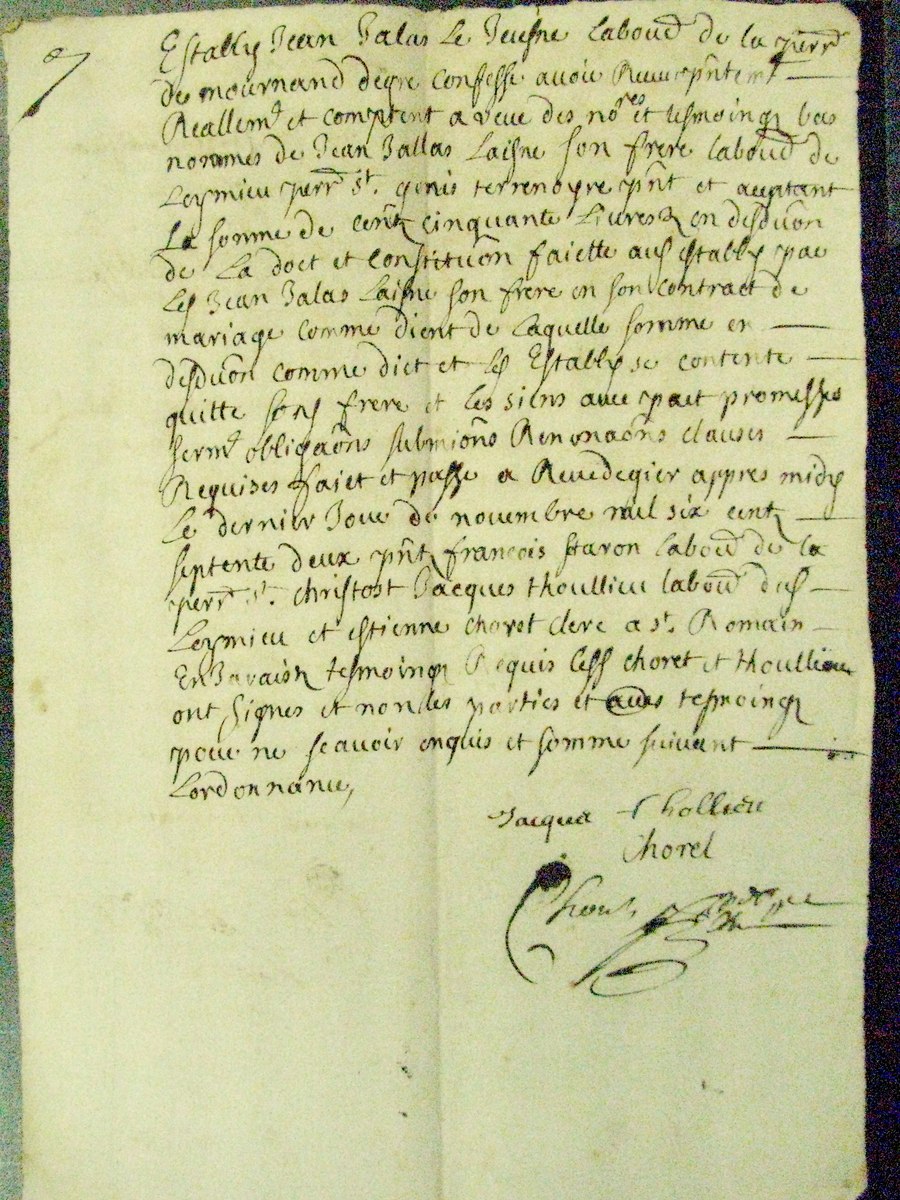 Estably Jean Jalas Le Jeusne laboud de la perrd
de mournand degre confesse avoir Reeu pntemt
Reallemt et comptent a veue des nores et tesmoingz bas
nommes de Jean Jallas Laisne son frere laboud de
Leymieu perrd st. genis terrenoyre pnt et aceptant
La somme de centz cinquante Livresz en desduon
de La doct et constituon faictte aud estably par
Led Jean Jalas Laisne son frere en son contract de
mariage comme dient de laquelle somme en
desduon comme dict et led Estably se contente
quitte sond frere et les siens avec pact promesses
sermt obligaons submions Renonaons clauses
Requises faict et passe a Rivedegier appres midy
Le dernier Jour de novembre mil six centz
septente deux pntz francois staron laboud de la
perrd st. christost Jacques thoullieu laboud dud
Leymieu et estienne chorel clerc a st. Romain
En Jaraistz tesmoingz Requis lesd chorel et thoullieu
ont signes et non les parties et aues tesmoingz
pour ne scavoir enquis et somme suivant
Lordonnance,
Jacques Thollieu
Chorel